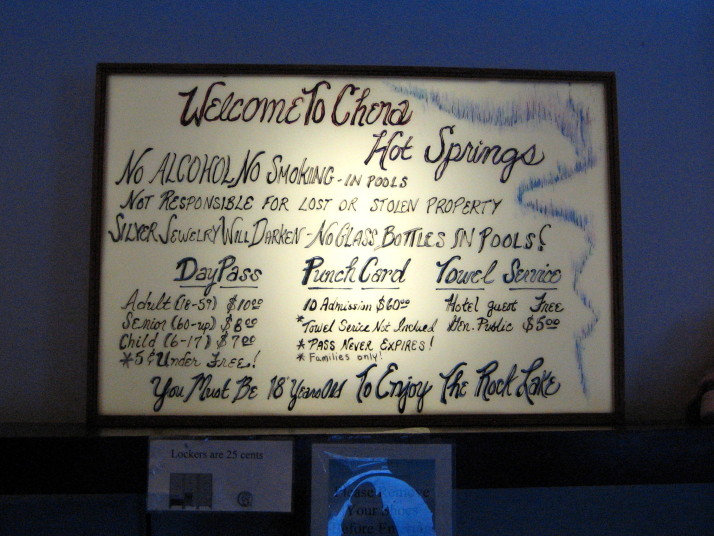 Welcome To Chena
Hot Springs
No Alcohol, No Smoking - in pools
Not Responsible for lost or stolen property
Silver Jewelry Will Darken - No Glass Bottles In Pools!
Day Pass Punch Card Towel Service
Adult (18-59) $10.00 10 Admission $60.00 Hotel guest Free
Senior (60-up) $8.00 *Towel Serice Not Inclued Gen. Public $5.00
Child (6-17) $7.00 * Pass Never Expires!
*5 & Under Free! * Families only!
You Must Be 18 Years Old To Enjoy The Rock Lake
Lockers are 25 cents
Please Remove
Your Shoes
Before